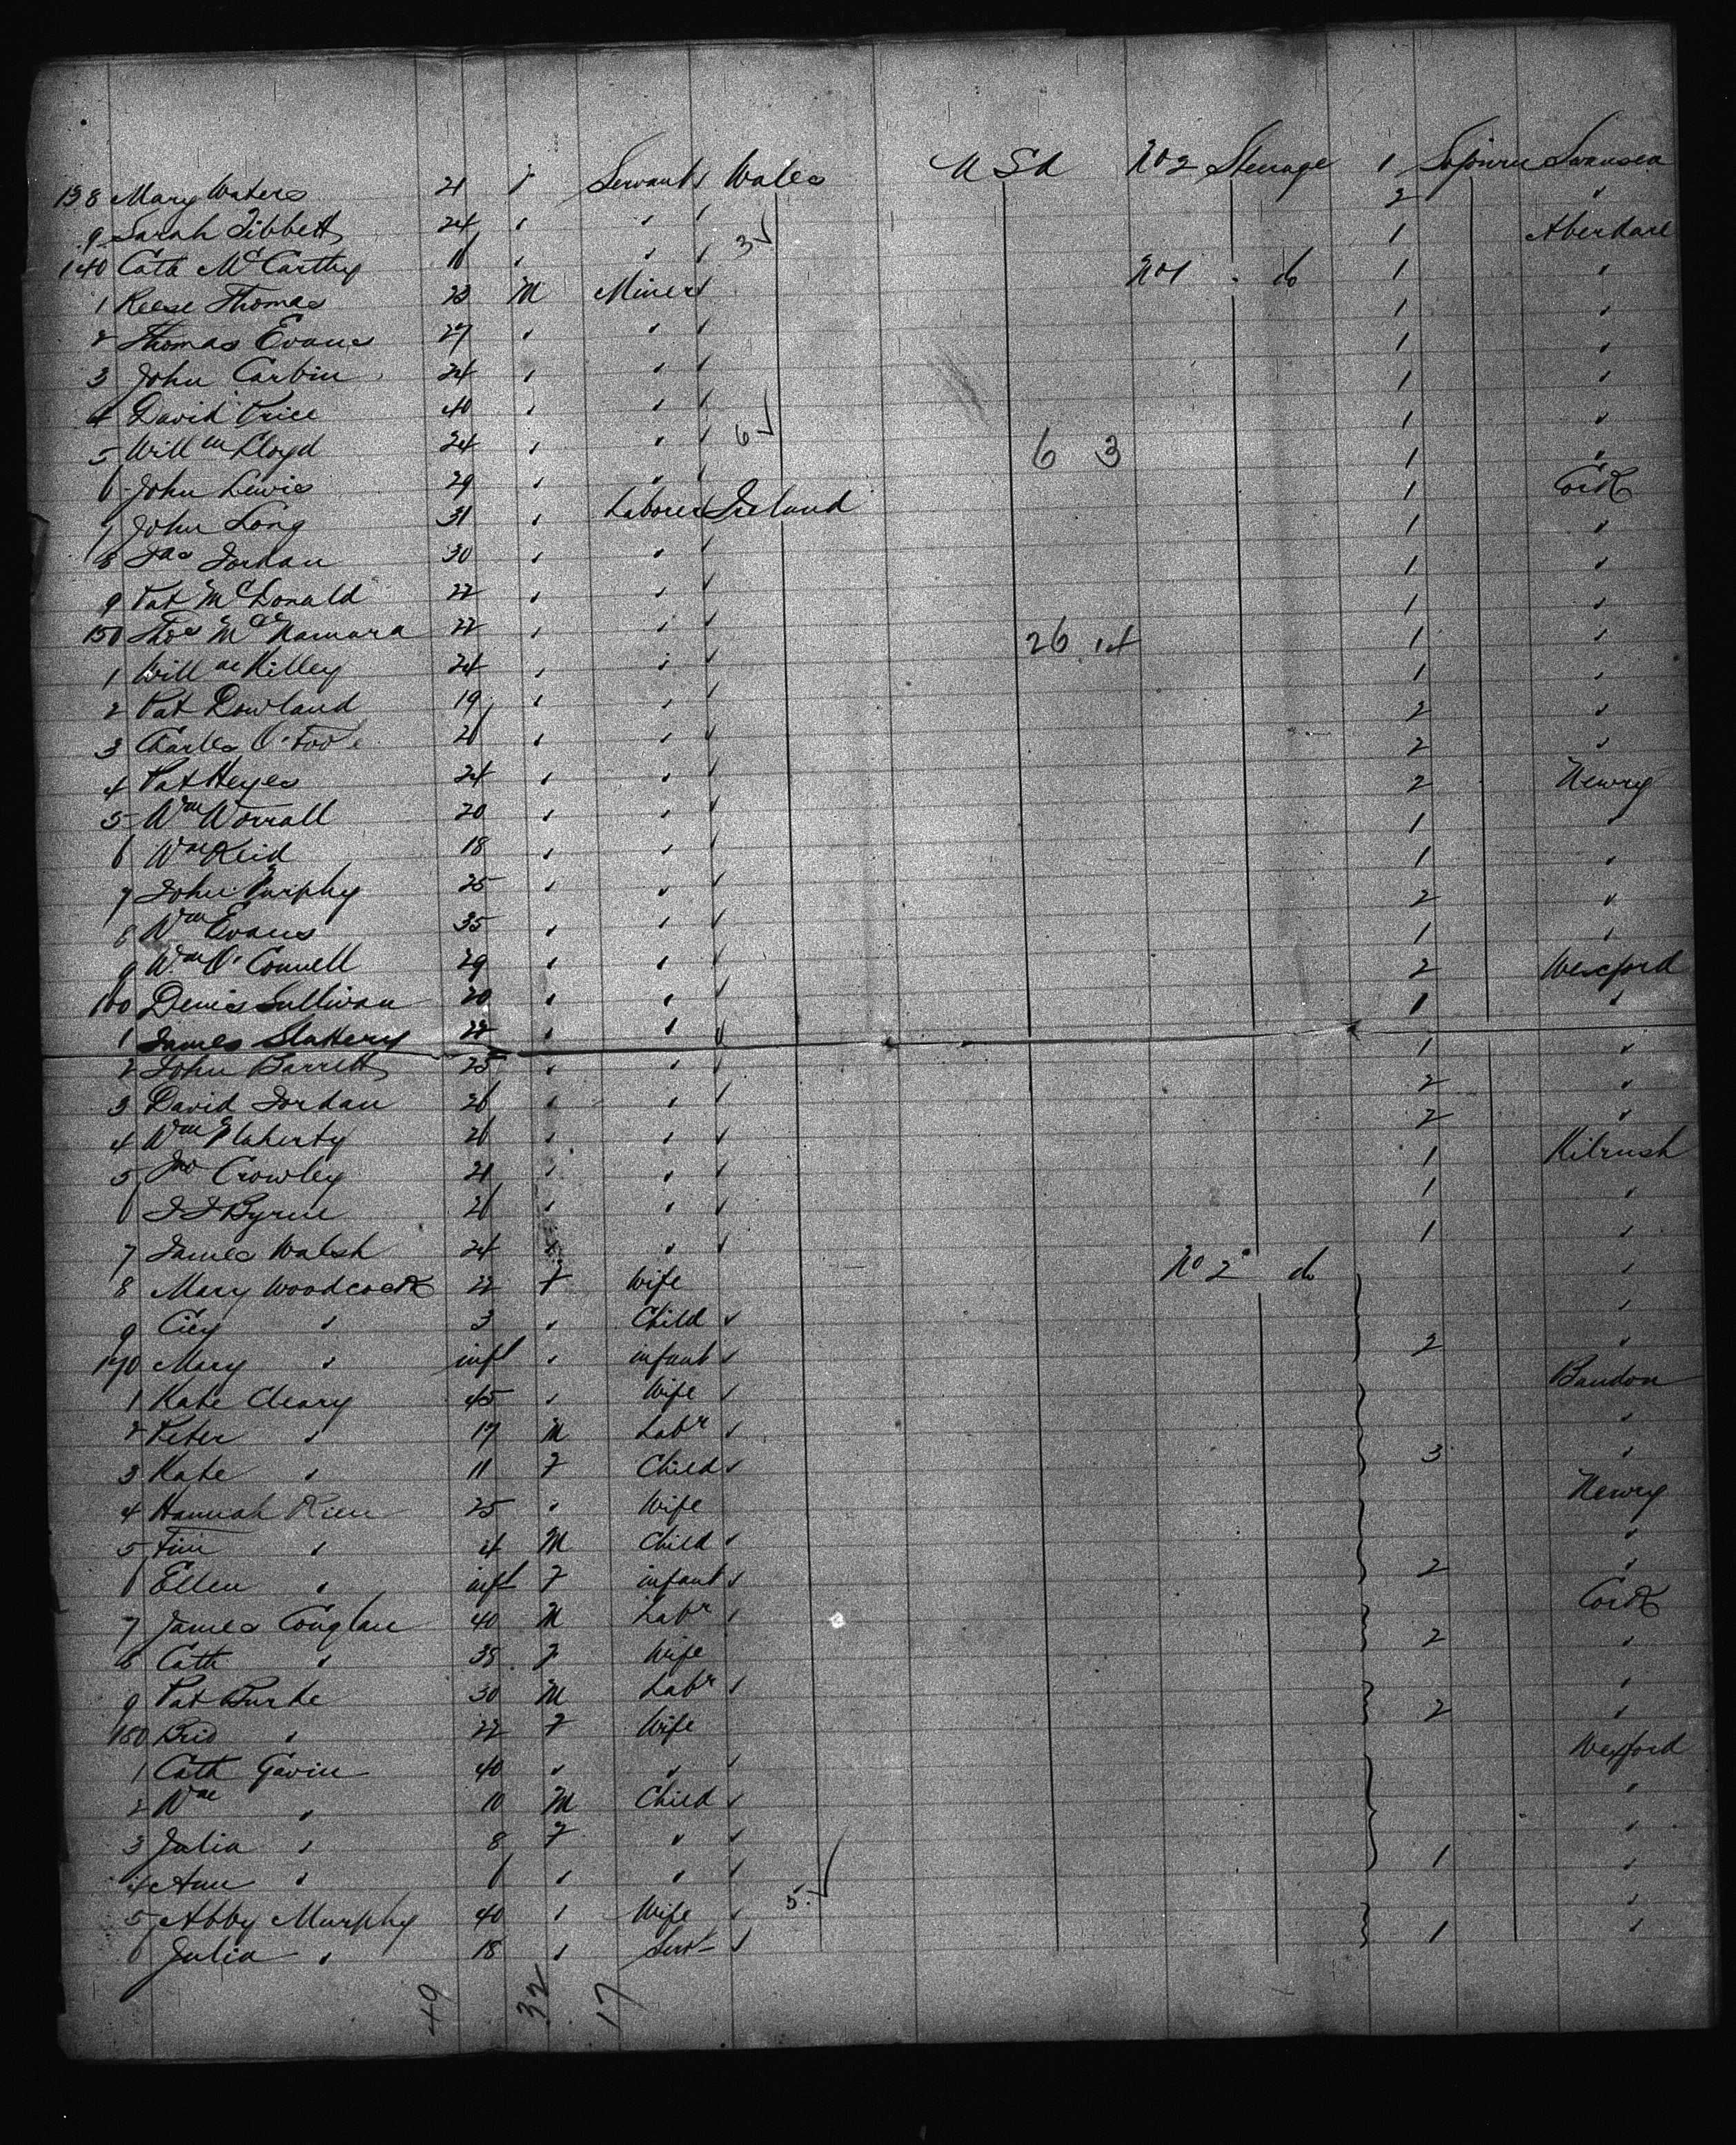 138 Mary Waters 21 f Servant Wales U S A No 2 Steerage 1 Sojourn Swansea
9 Sarah Tibbett 24 " " 2 "
140 Cath McCarthy " " 3 1 Aberdare
1 Reese Thomas 23 M Miner No 1 " do 1 "
2 Thomas Evans 27 " " 1 "
3 John Carbin 24 " " 1 "
4 David Price 40 " " 1 "
5 Willm Lloyd 24 " " 6 6 3 1 "
6 John Lewis 29 " " 1 "
7 John Long 31 " Laborer Ireland 1 Cork
8 Jas Jordan 30 " " 1 "
9 Pat McDonald 22 " " 1 "
150 Thos McNamara 22 " " 26 14 1 "
1 Willm Killey 24 " " 1 "
2 Pat Dowland 19 " " 1 "
3 Charles O'Toole " " 2 "
4 Pat Heyes 24 " " 2 "
5 Wm Worrall 20 " " 2 Newry
6 Wm Reid 18 " " 1 "
7 John Murphy 25 " " 1 "
8 Wm Evans 35 " " 2 "
9 Wm O'Connell 29 " " 1 "
160 Denis Sullivan 20 " " 2 Wexford
1 James Slattery 22 " " 1 "
2 John Barrett 25 " " 1 "
3 David Jordan 26 " " 2 "
4 Wm Flaherty 26 " " 2 "
5 Jno Crowley 21 " " 1 Kilrush
6 J J Byrne 26 " " 1 "
7 James Walsh 24 " " 1 "
8 Mary Woodcock 22 f Wife No 2 do "
9 " 3 " Child "
170 Mary " inft " infant 2 "
1 Kate Cleary 45 " Wife Bandon
2 Peter " 17 M Labr "
3 Kate " 11 F Child 3 "
4 Hannah 25 " Wife Newry
5 Tim " 4 M Child "
6 Ellen " inft F infant 2 "
7 James Conglan 40 M Labr Cork
8 Cath " 38 F Wife 2 "
9 Pat Burke 30 M Labr "
180 Brid " 22 F Wife 2 "
1 Cath Gavin 40 " " Wexford
2 Wm " 10 M Child "
3 Julia " 8 F " "
4 Ann " 6 " " 1 "
5 Abby Murphy 40 " Wife 5 "
6 Julia " 18 " Servt 1 "
49 32 17